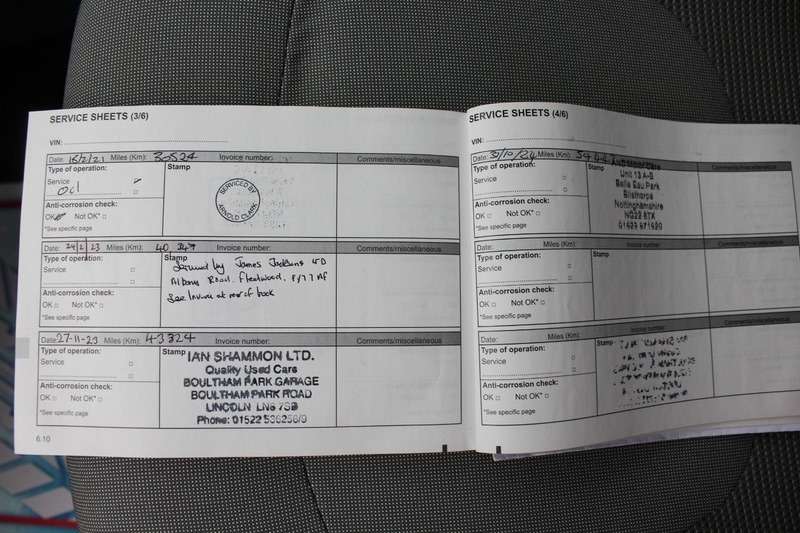 SERVICE SHEETS (3/6)
VIN:
Date: 16/2/21 Miles (Km): 30524 Invoice number: Comments/miscellaneous
Type of operation: Stamp
Service
Oil
SERVICED BY
ARNOLD CLARK
Anti-corrosion check:
OK Not OK*
*See specific page
Date: 24/2/23 Miles (Km): 40,347 Invoice number: Comments/miscellaneous
Type of operation: Stamp
Serviced by James Jacksons LTD
Service
Albany Road. Fleetwood.
See Invoice at rear of book
Anti-corrosion check:
OK Not OK*
*See specific page
Date: 27-11-23 Miles (Km): 43324 Invoice number: Comments/miscellaneous
Type of operation: Stamp
Service
IAN SHAMMON LTD.
Quality Used Cars
BOULTHAM PARK GARAGE
BOULTHAM PARK ROAD
LINCOLN LN6 7SB
Phone: 01522 536256/9
Anti-corrosion check:
OK Not OK*
*See specific page
6.10
SERVICE SHEETS (4/6)
VIN:
Date: 31/10/24 Miles (Km): Comments/miscellaneous
Type of operation: Stamp
Service
Unit 13 A-B
Belle Eau Park
Bilsthorpe
Nottinghamshire
NG22 8TX
01623 871620
Anti-corrosion check:
OK Not OK*
*See specific page
Date: Miles (Km): Invoice number: Comments/miscellaneous
Type of operation: Stamp
Service
Anti-corrosion check:
OK Not OK*
*See specific page
Date: Miles (Km): Invoice number: Comments/miscellaneous
Type of operation: Stamp
Service
Anti-corrosion check:
OK Not OK*
*See specific page